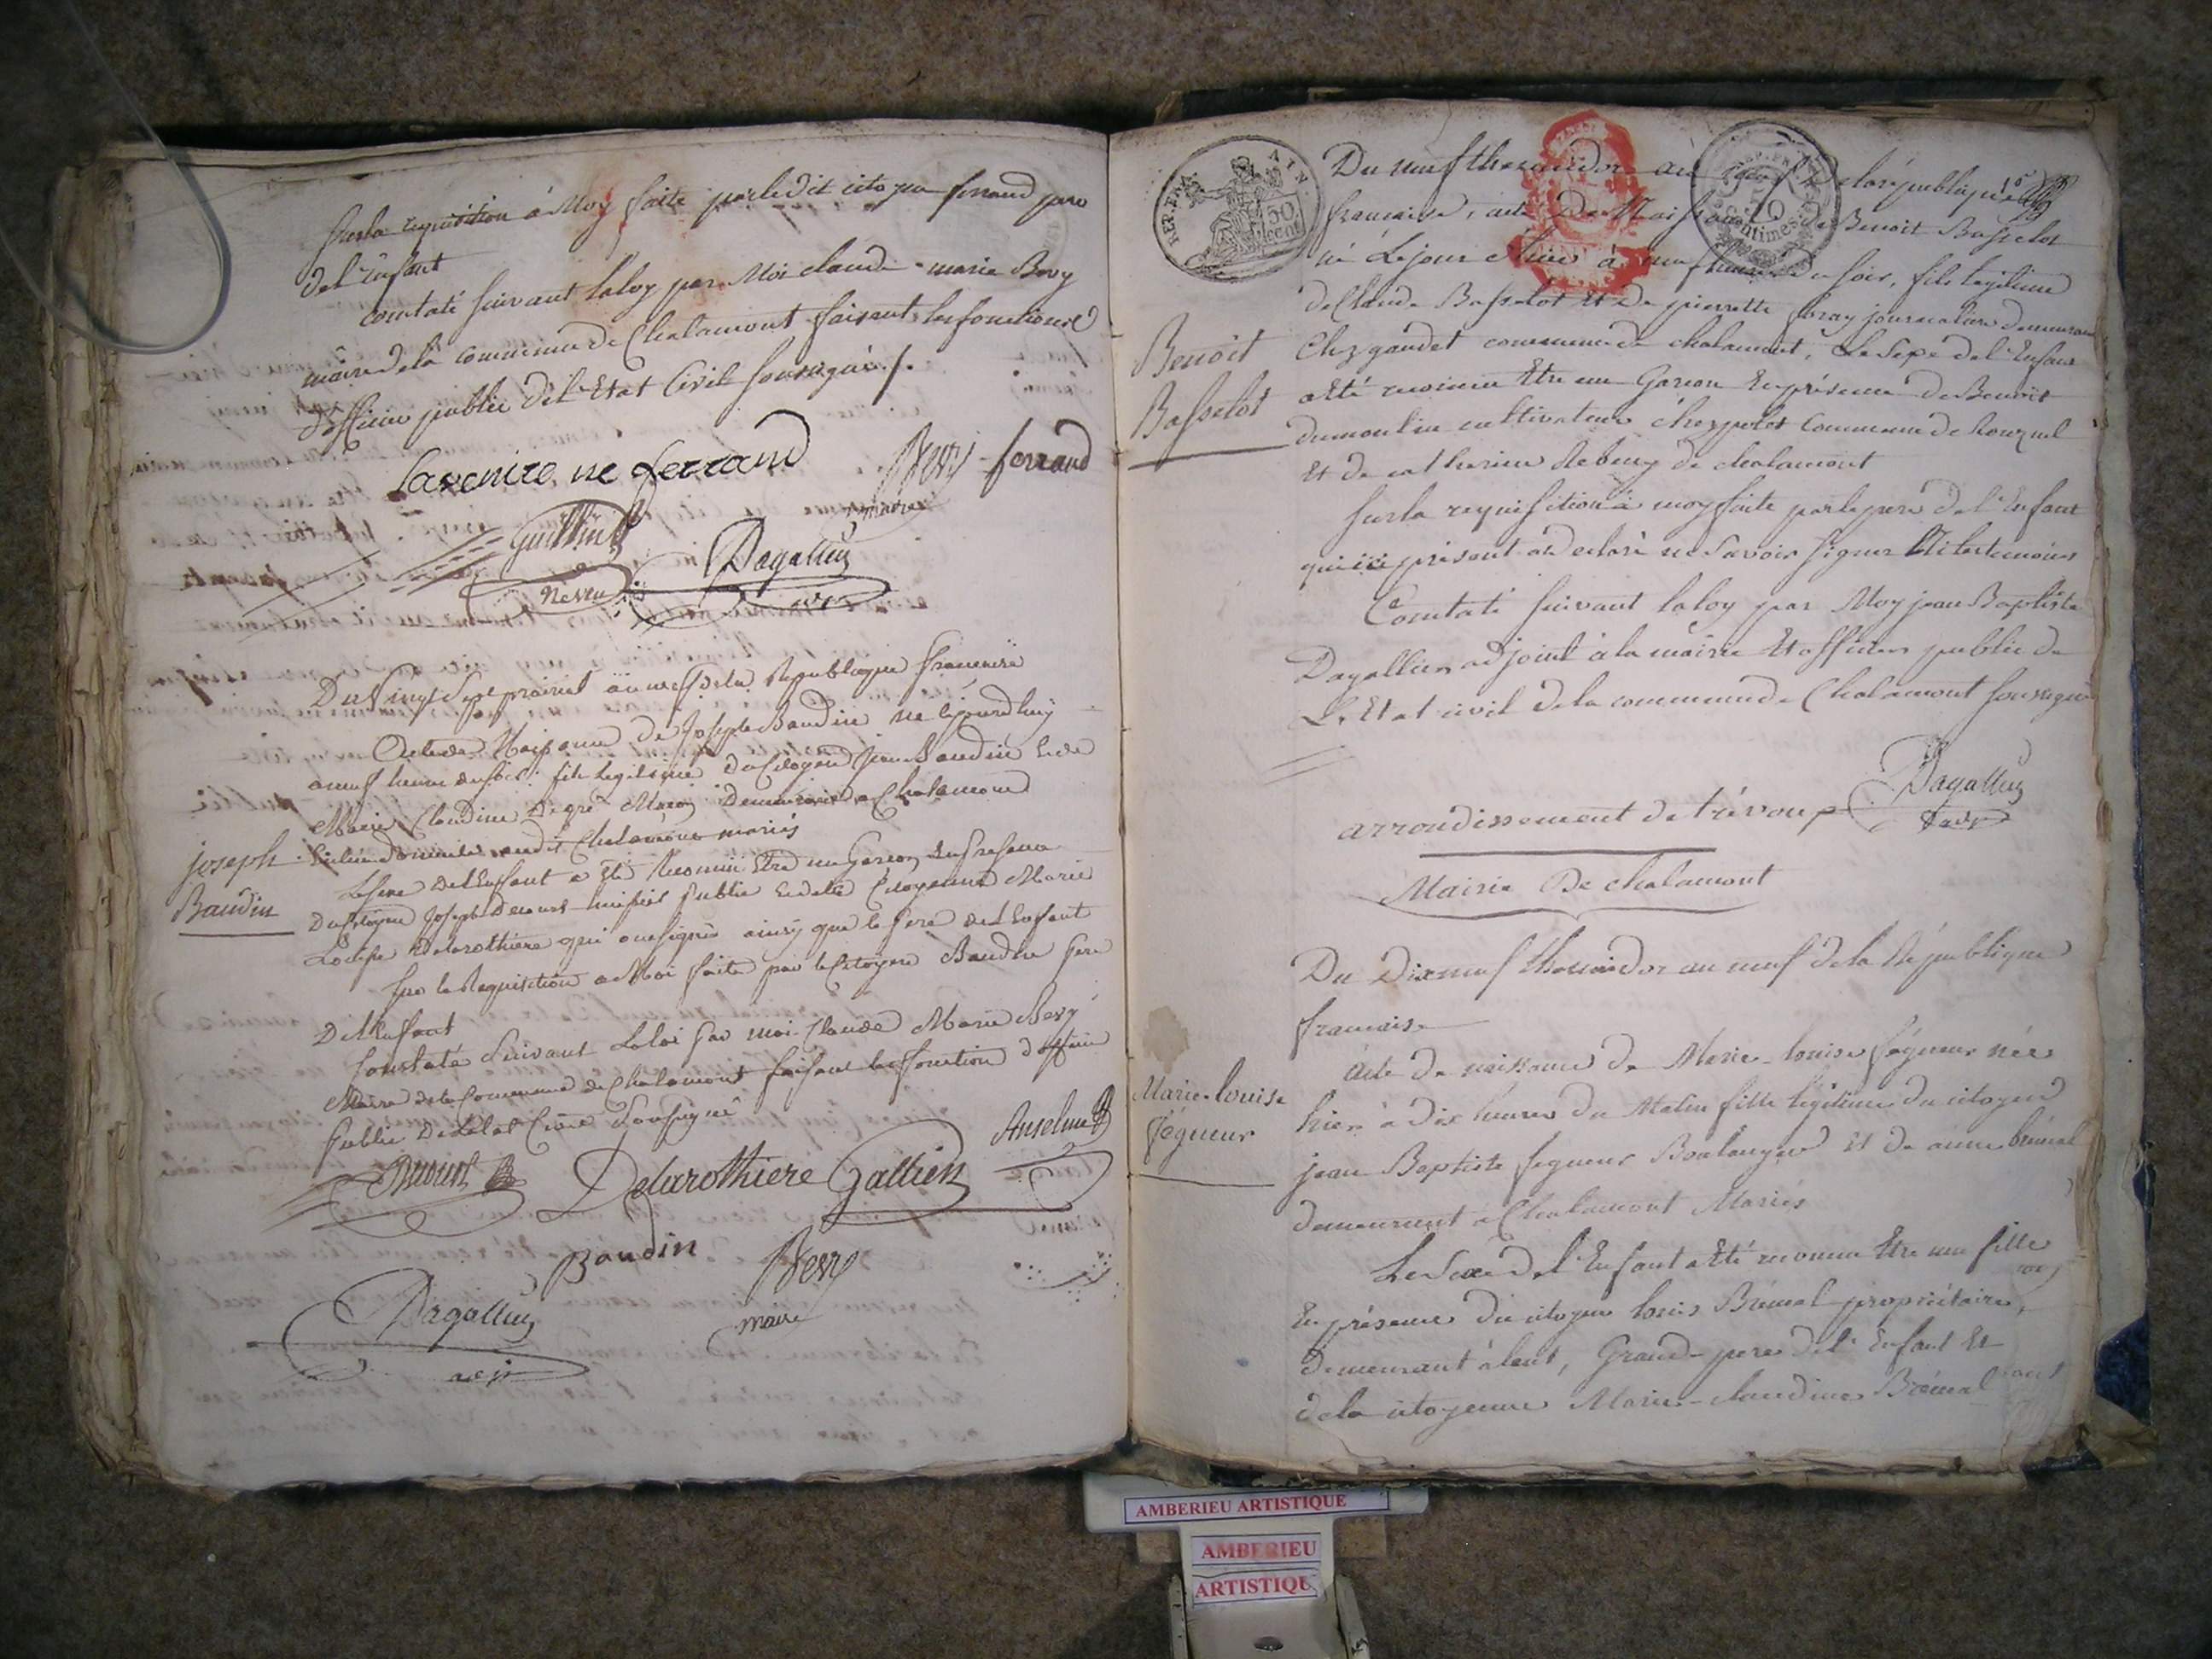 Sur la requisition à Moy faite par ledit citoyen ferrand pere
del'Enfant
Constaté suivant laloy par Moi claude-marie Bevy
maire dela commune de Chalamont faisant les fonctions
d'officier public del'Etat Civil soussigné
ne ferrand
Bevy ferrand
maire
Dagallier
adj
Du Vingt Sept prairial an neuf de la Republique francaise
Acte de Naissance de Joseph Baudin né lejourdhuy
a neuf heures du soir fils legitime du Citoyen Jean Baudin et de
Marie Claudine Demeurant a Chalamont
audit Chalamont mariés
joseph
Baudin
Le sexe del Enfant a été Reconnu Etre un Garçon En presence
Du Citoyen Joseph public et dela Citoyenne Marie
Delarothiere qui ont signés ainsy que le pere de L Enfant
sur la Requisition a Moi faite par le Citoyen Baudin pere
De l Enfant
Constaté Suivant La loi par moi Claude Marie Bevy
Maire de la Commune de Chalamont faisant les fonction dofficier
public De Letat Civil Soussigné
Delarothiere Gallien Anselme
Baudin Bevy
Dagallier maire
adj
REP. FRA. AIN.
50
cent
Du neuf thermidor an neuf Delarépublique
francaise, acte De Naissance de Benoit Basselot
né Lejour à neuf heures Du soir, fils legitime
de Claude Basselot Et De pierrette journaliers demeurant
Benoit
Basselot
Chez gaudet commune de chalamont, Le Sexe del'Enfant
a Eté reconnu Etre un Garcon En présence de Benoit
dumoulin cultivateur commune de
Et de catherine de chalamont
Sur la requisition à moy faite par le pere del'Enfant
qui ici présent a déclaré ne savoir signer Ni les temoins
Constaté suivant laloy par Moy jean Baptiste
Dagallier adjoint à la mairie Et officier public de
L'Etat civil dela commune de Chalamont soussigné
Dagallier
adj
arrondissement de trévoux
Mairie De chalamont
Du Dix neuf thermidor an neuf dela République
francaise
Acte De naissance de Marie-louise ségueur née
Marie-louise
Ségueur
hier à dix heures du Matin fille légitime du citoyen
jean Baptiste segueur Boulanger Et de anne brénal
demeurant à Chalamont Mariés
Le Sexe del'Enfant a Eté reconnu Etre une fille
En présence du citoyen louis Brénal propriétaire,
Demeurant à lent, Grand-pere del'Enfant Et
dela citoyenne Marie-claudine Brénal
AMBERIEU ARTISTIQUE
AMBERIEU
ARTISTIQU